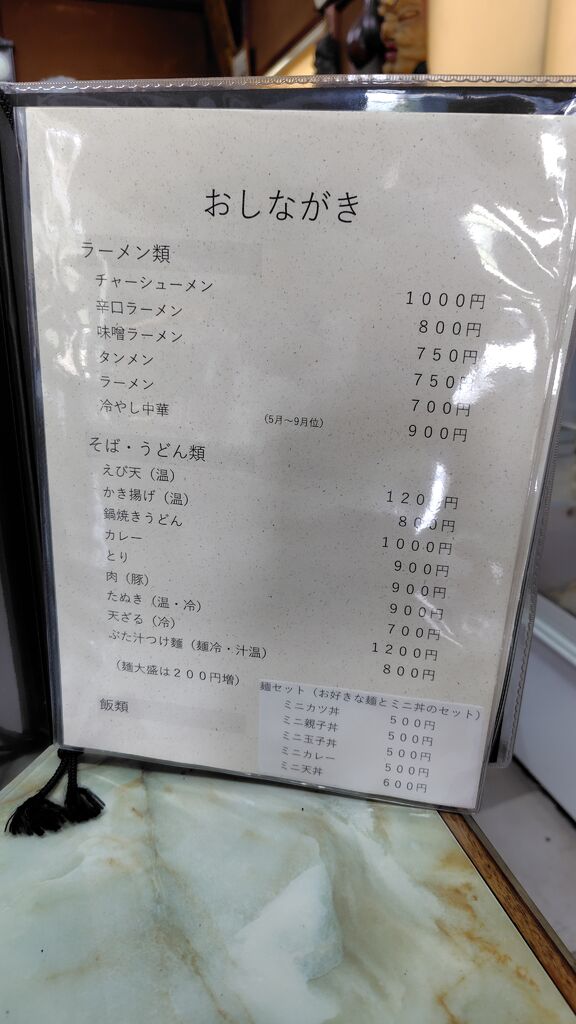 おしながき
ラーメン類
チャーシューメン 1000円
辛口ラーメン 800円
味噌ラーメン 750円
タンメン 750円
ラーメン 700円
冷やし中華 (5月～9月位) 900円
そば・うどん類
えび天（温） 1200円
かき揚げ（温） 800円
鍋焼きうどん 1000円
カレー 900円
とり 900円
肉（豚） 900円
たぬき（温・冷） 700円
天ざる（冷） 1200円
ぶた汁つけ麺（麺冷・汁温） 800円
（麺大盛は２００円増）
飯類
麺セット（お好きな麺とミニ丼のセット）
ミニカツ丼 500円
ミニ親子丼 500円
ミニ玉子丼 500円
ミニカレー 500円
ミニ天丼 600円